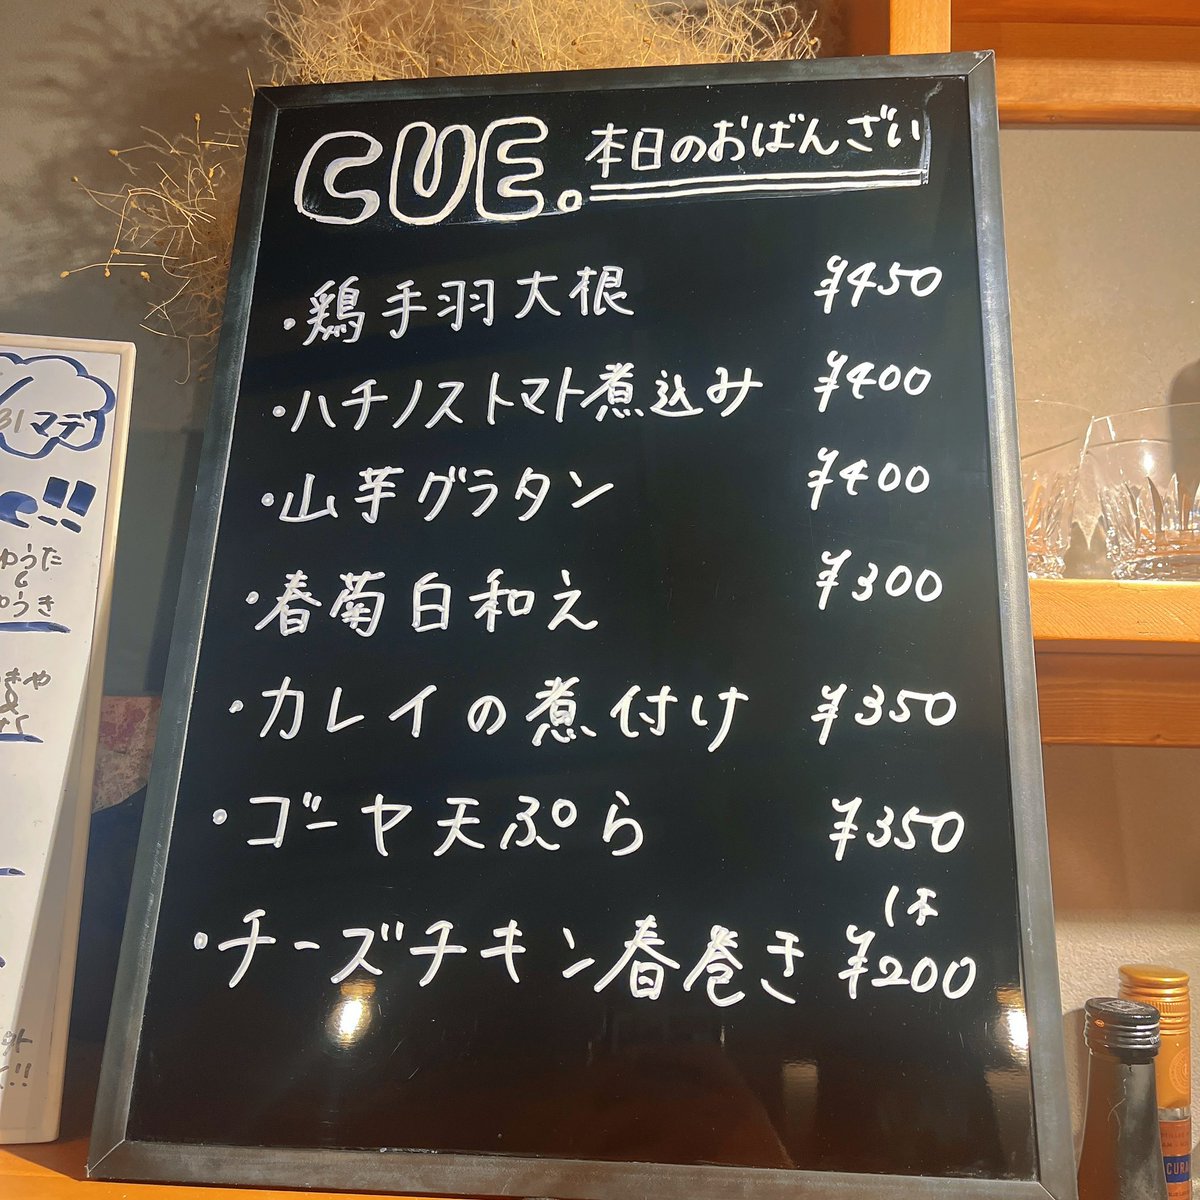 CUE. 本日のおばんざい
・鶏手羽大根 ¥450
・ハチノストマト煮込み ¥400
・山芋グラタン ¥400
・春菊白和え ¥300
・カレイの煮付け ¥350
・ゴーヤ天ぷら ¥350
・チーズチキン春巻き 1本 ¥200
31マデ
!!
ゆうた
ゆうき
きや
&
外
!!
CURA